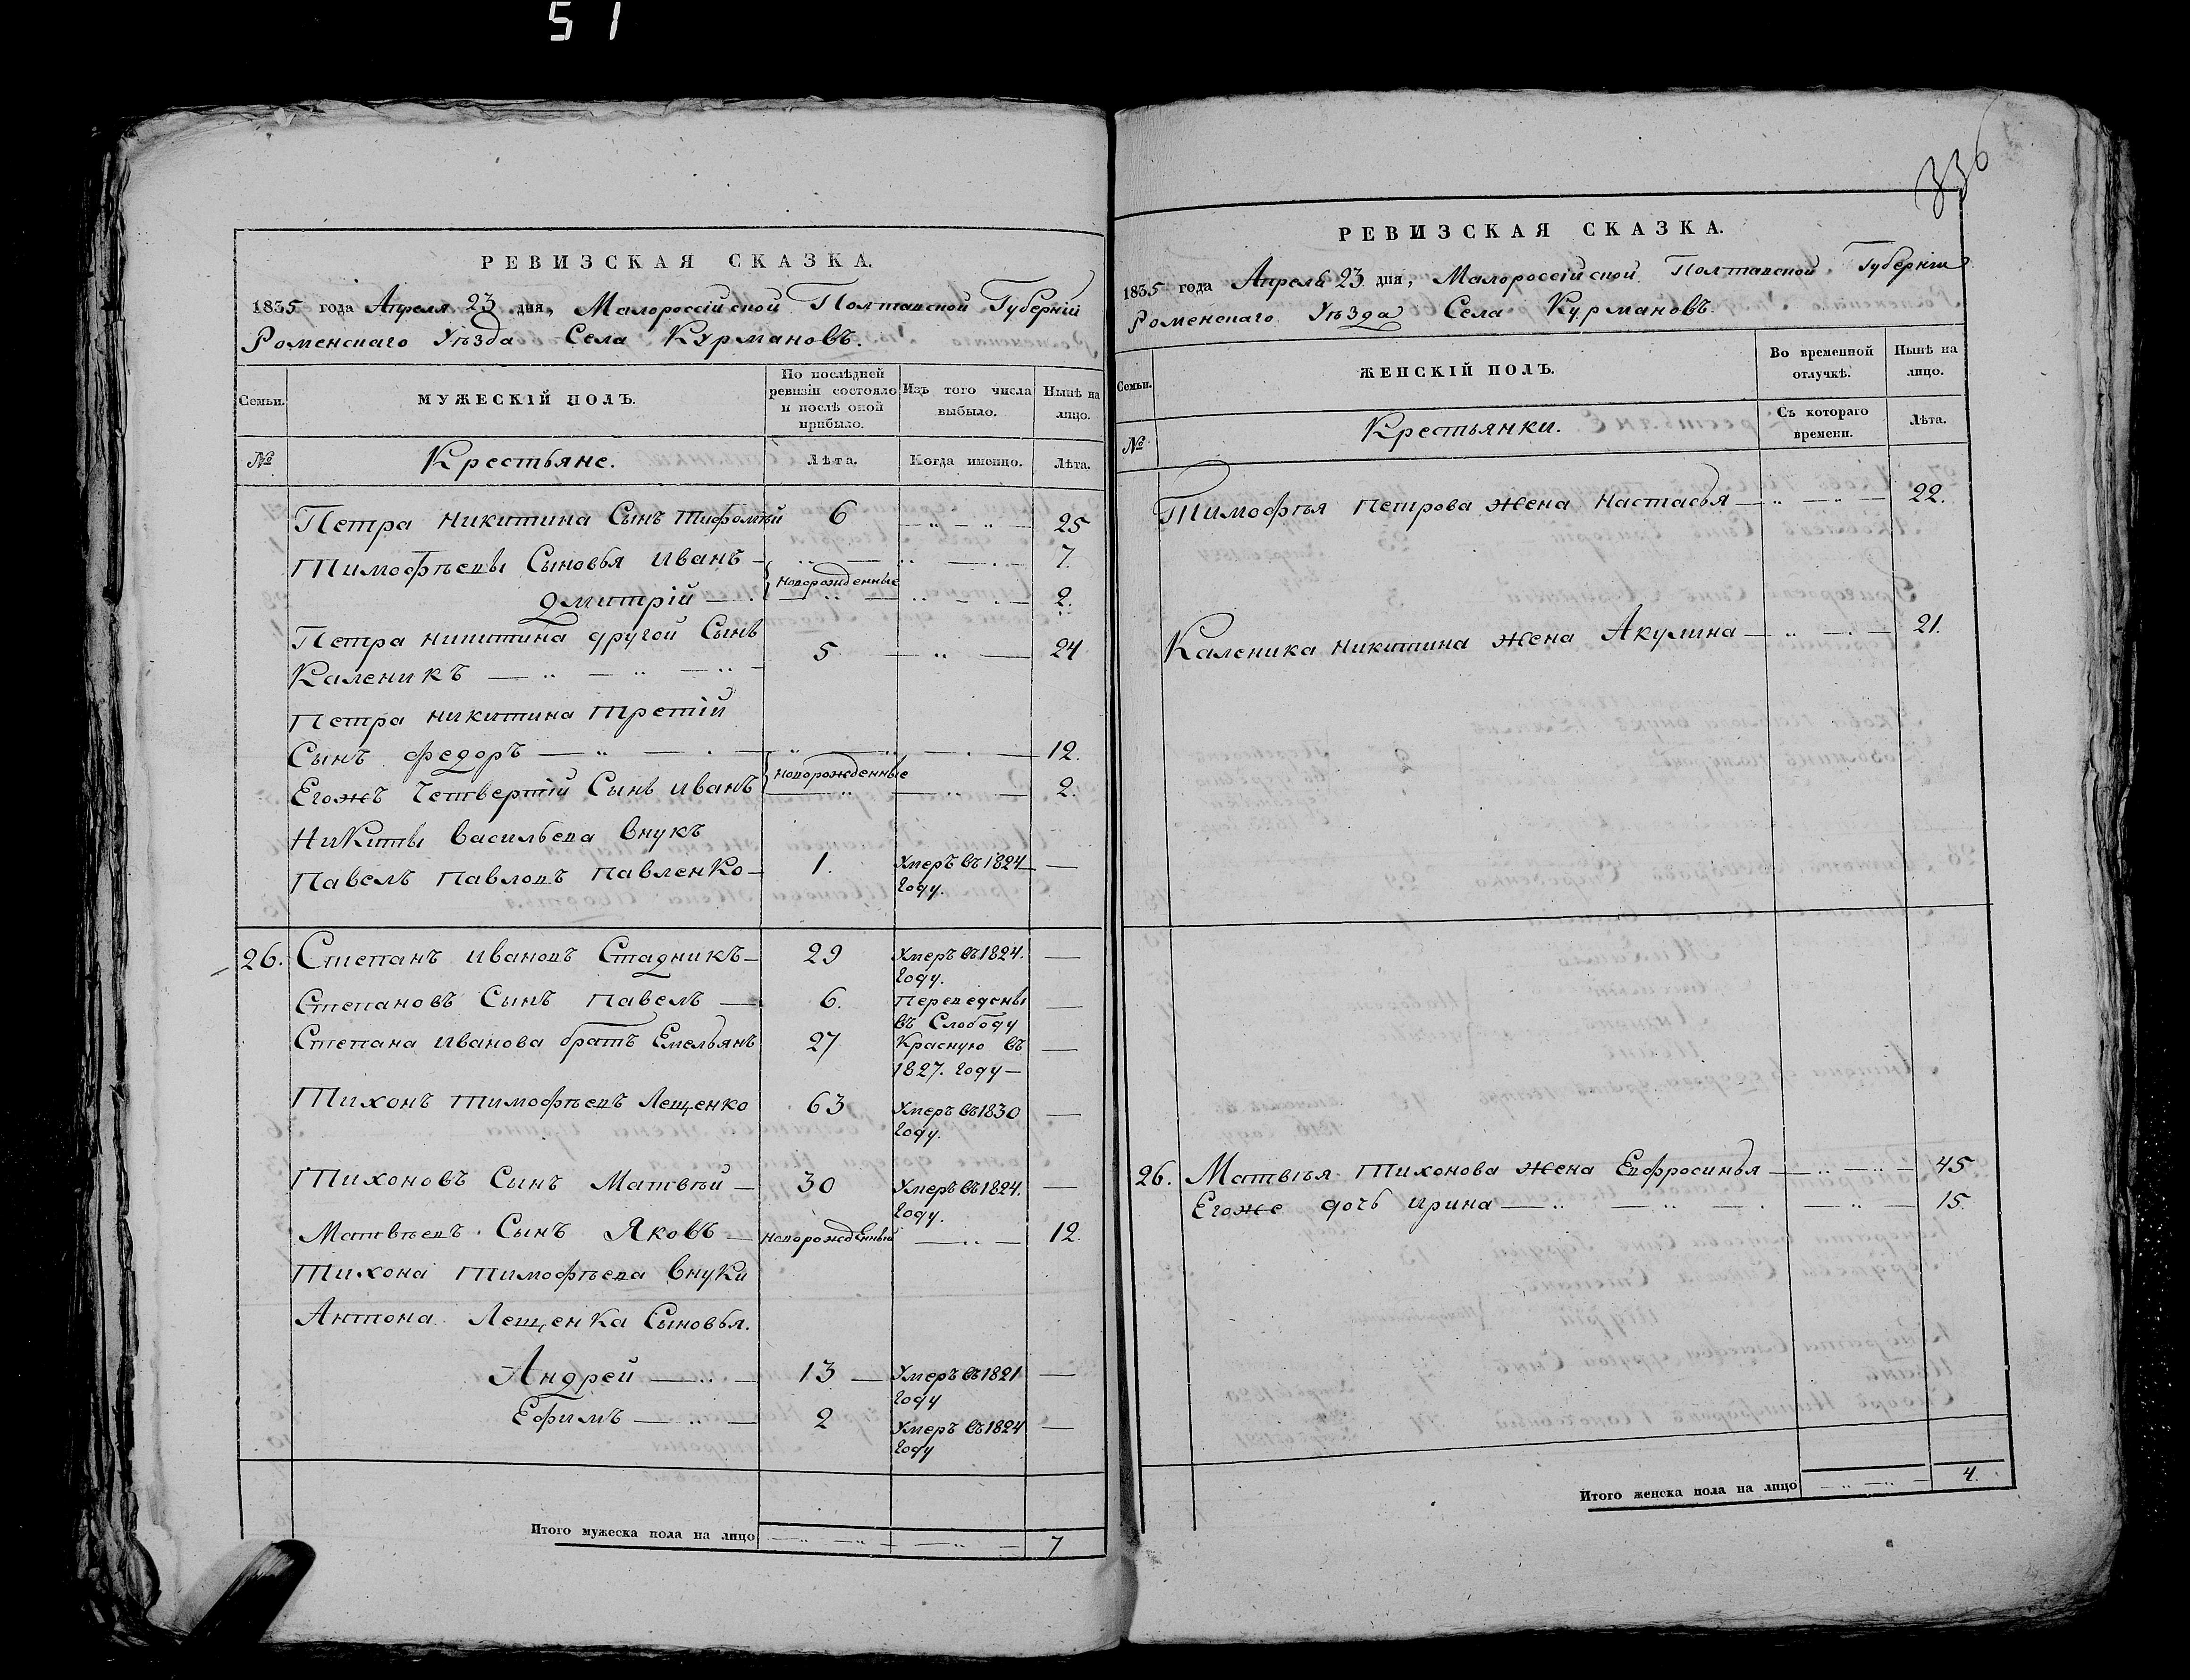 51
РЕВИЗСКАЯ СКАЗКА.
1835 года Апреля 23 дня, Малороссійской Полтавской Губерніи
Роменскаго Уѣзда Села Курмановъ.
Семьи.
МУЖЕСКІЙ ПОЛЪ.
По послѣдней ревизіи состояло и послѣ оной прибыло.
Изъ того числа выбыло.
Нынѣ на лицо.
№
Крестьяне.
Лѣта.
Когда именно.
Лѣта.
Петра Никитина Сынъ 6 — " — " — 25
Тимофѣевы Сыновья Иванъ — 7.
Новорожденные
Дмитрій — 2.
Петра Никитина другой Сынъ
Каленикъ — " — " — 5 — " — 24
Петра Никитина Третій
Сынъ Федоръ — " — . — 12.
Новорожденные
Егожъ Четвертій Сынъ Иванъ — " — 2.
Никиты Васильева Внукъ
Павелъ Павловъ Павленко — 1. Умеръ въ 1824 —
году.
26. Степанъ Ивановъ Стадникъ — 29 Умеръ въ 1824. —
году.
Степановъ Сынъ Павелъ — 6. Переведены —
въ Слободу
Степана Иванова братъ Емельянъ 27 Красную въ —
1827. году —
Тихонъ Тимофѣевъ Лещенко 63 Умеръ въ 1830 —
году.
Тихоновъ Сынъ Матвѣй — 30 Умеръ въ 1824. —
году.
Матвѣевъ Сынъ Яковъ — новорожденный — " — 12.
Тихона Тимофѣева Внуки
Антона Лещенка Сыновья.
Андрей — " — 13 — Умеръ въ 1821 —
году
Ефимъ — " — 2 Умеръ въ 1824 —
году
Итого мужеска пола на лицо — " — " — — " — 7
336
РЕВИЗСКАЯ СКАЗКА.
1835 года Апреля 23 дня, Малороссійской Полтавской Губерніи
Роменскаго Уѣзда Села Курмановъ.
Семьи.
ЖЕНСКІЙ ПОЛЪ.
Во временной отлучкѣ.
Нынѣ на лицо.
№
Крестьянки.
Съ котораго времени.
Лѣта.
Тимофѣя Петрова жена Настасья — " — " — 22.
Каленика Никитина жена Акулина — " — . — 21.
26. Матвѣя Тихонова жена Евфросинья — " — " — 45
Егоже дочь Ирина — " — " — . — " — 15.
Итого женска пола на лицо — " — " — 4.